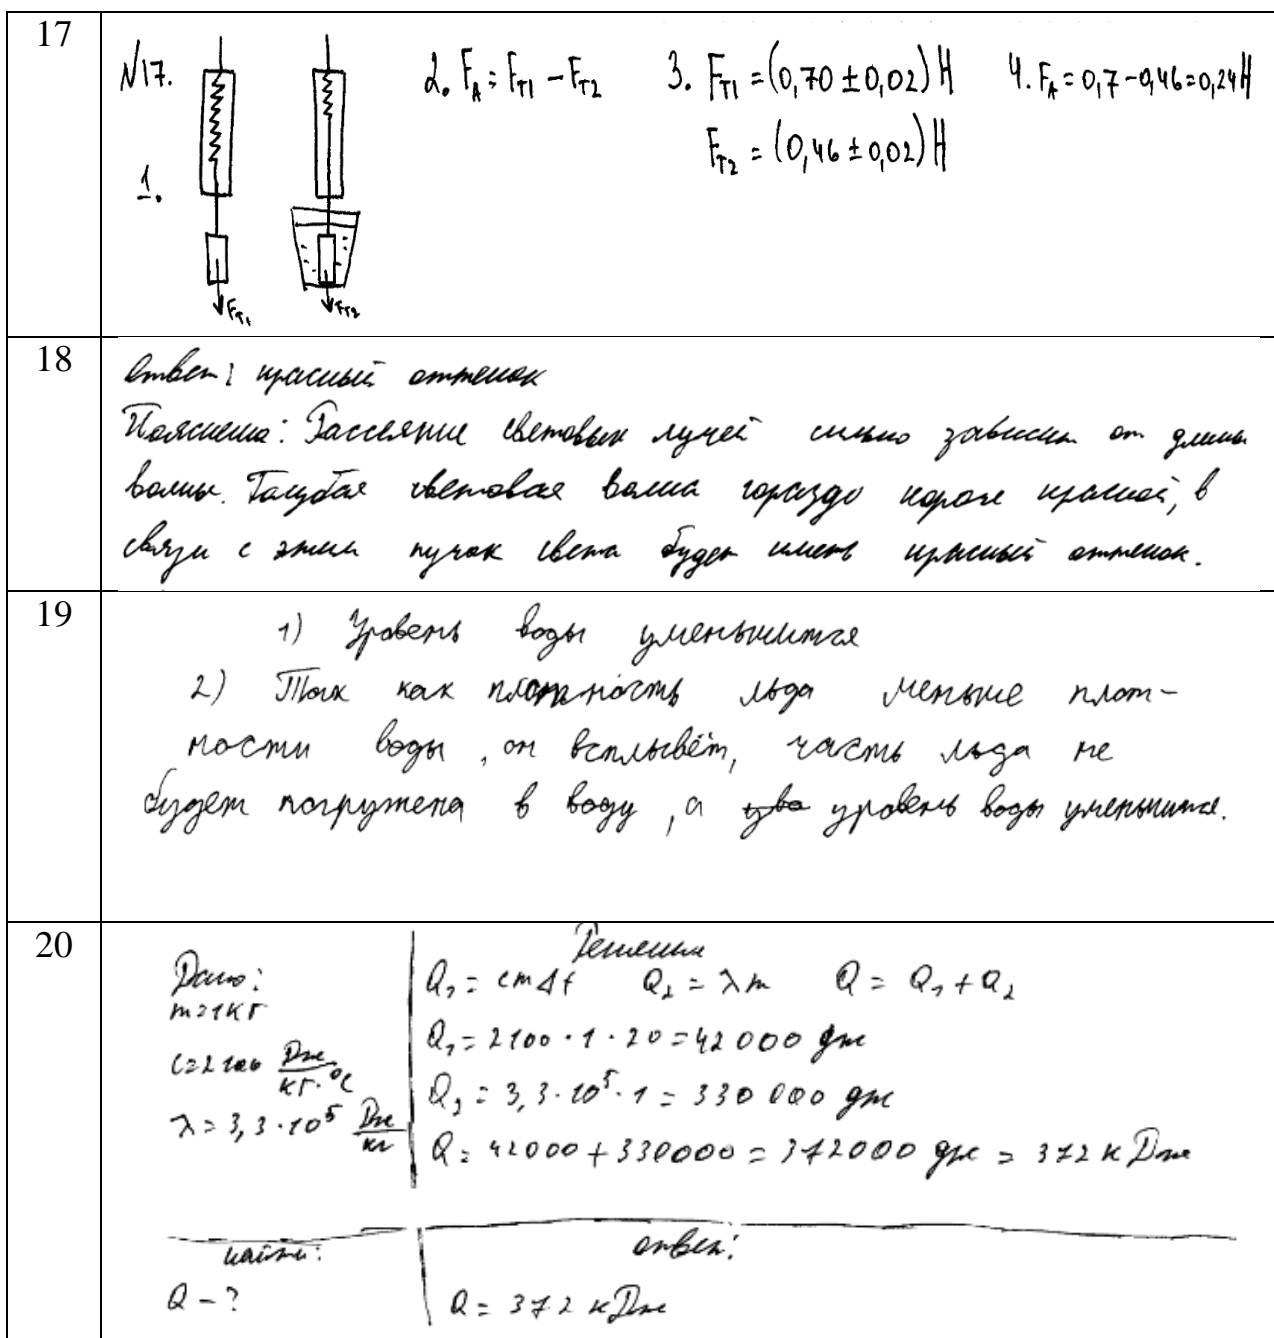 17
№17.
1.
F_т1
F_т2
2. F_A = F_т1 − F_т2
3. F_т1 = (0,70 ± 0,02) Н
F_т2 = (0,46 ± 0,02) Н
4. F_A = 0,7 − 0,46 = 0,24 Н
18
Ответ: красный оттенок
Пояснение: Рассеяние световых лучей сильно зависит от длины
волны. Голубая световая волна гораздо короче красной, в
связи с этим пучок света будет иметь красный оттенок.
19
1) Уровень воды уменьшится
2) Так как плотность льда меньше плот-
ности воды, он всплывёт, часть льда не
будет погружена в воду, а уровень воды уменьшится.
20
Дано:
m = 1 кг
c = 2100 Дж/кг·°C
λ = 3,3 · 10⁵ Дж/кг
найти:
Q - ?
Решение
Q₁ = cmΔt Q₂ = λm Q = Q₁ + Q₂
Q₁ = 2100 · 1 · 20 = 42000 дж
Q₂ = 3,3 · 10⁵ · 1 = 330000 дж
Q = 42000 + 330000 = 372000 дж = 372 кДж
ответ:
Q = 372 кДж